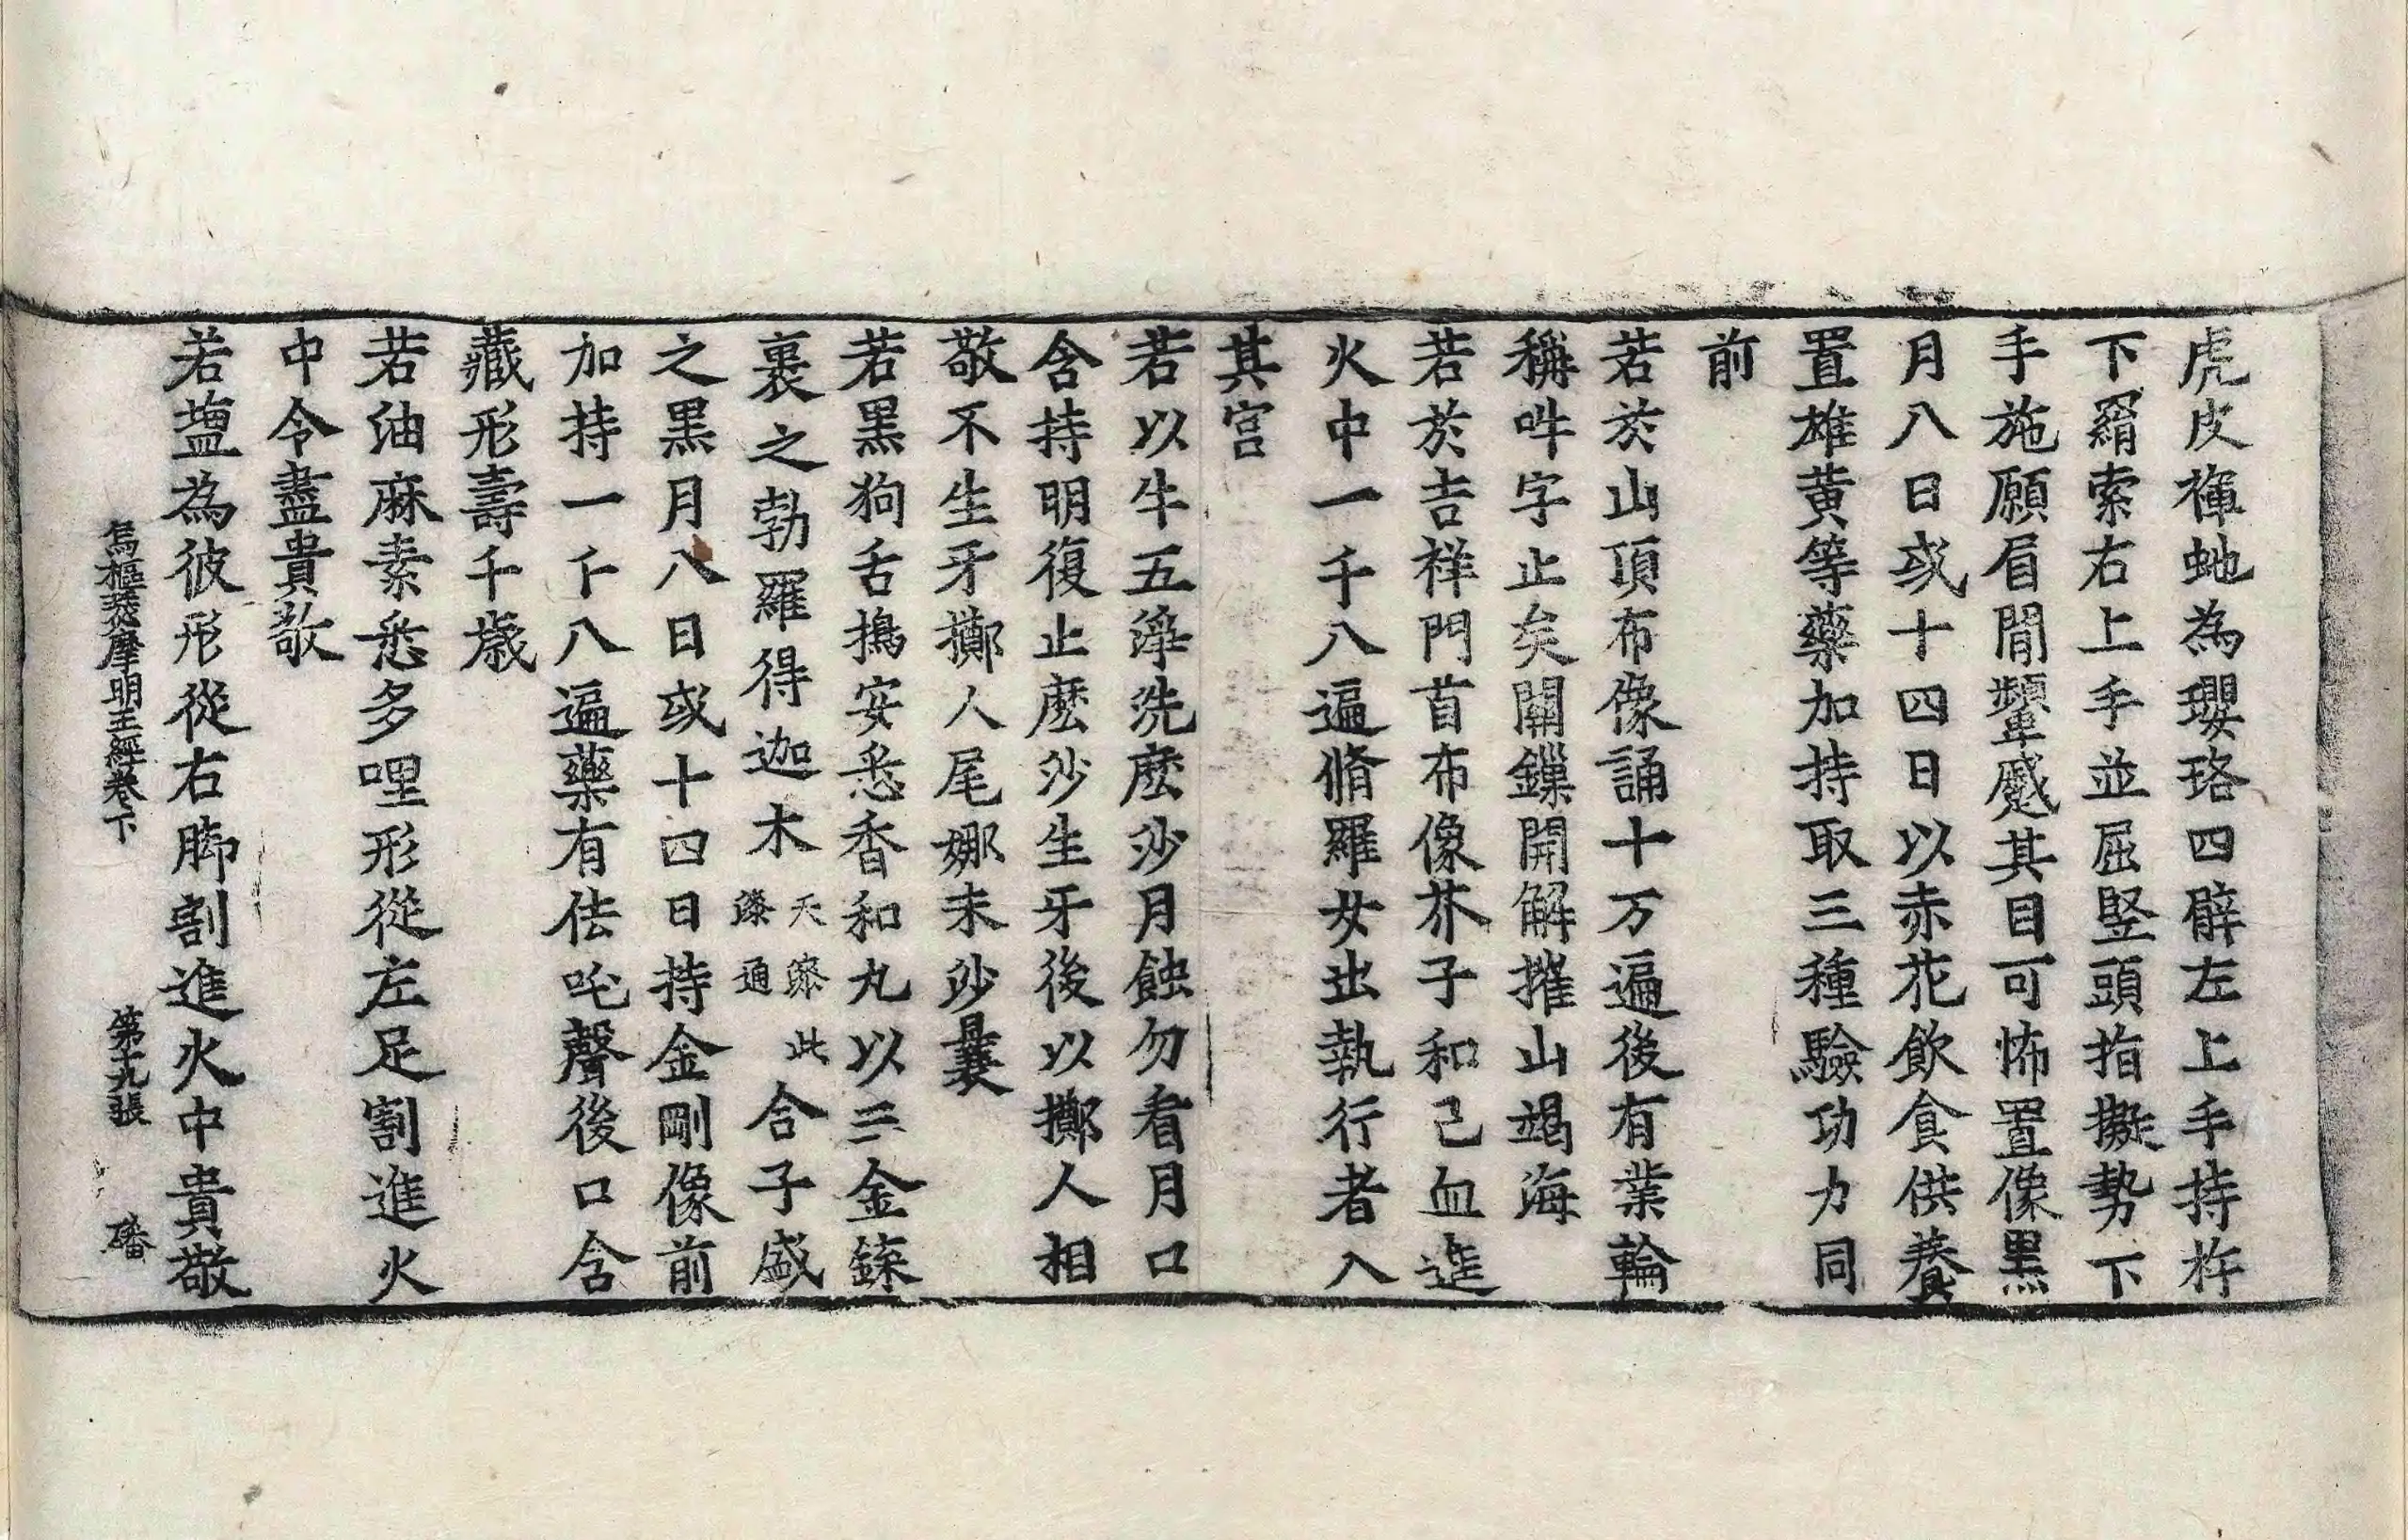 虎皮褌虵為瓔珞四臂左上手持杵
下羂索右上手並屈竪頭指擬勢下
手施願眉間顰蹙其目可怖置像黒
月八日或十四日以赤花飲食供養
置雄黄等藥加持取三種驗功力同
前
若於山頂布像誦十万遍後有業輪
稱吽字止矣關鏁開解摧山竭海
若於吉祥門首布像芥子和己血進
火中一千八遍脩羅女出執行者入
其宮
若以牛五淨洗麽沙月蝕勿看月口
含持明復止麽沙生牙後以擲人相
敬不生牙擲人尾娜末沙曩
若黒狗舌擣安悉香和丸以三金鎍
裹之勃羅得迦木天竺此㯃通合子盛
之黒月八日或十四日持金剛像前
加持一千八遍藥有佉吒聲後口含
藏形壽千歲
若油麻素悉多哩形從左足割進火
中令盡貴敬
若塩為彼形從右脚割進火中貴敬
烏樞瑟摩明王經卷下 第十九張 磻